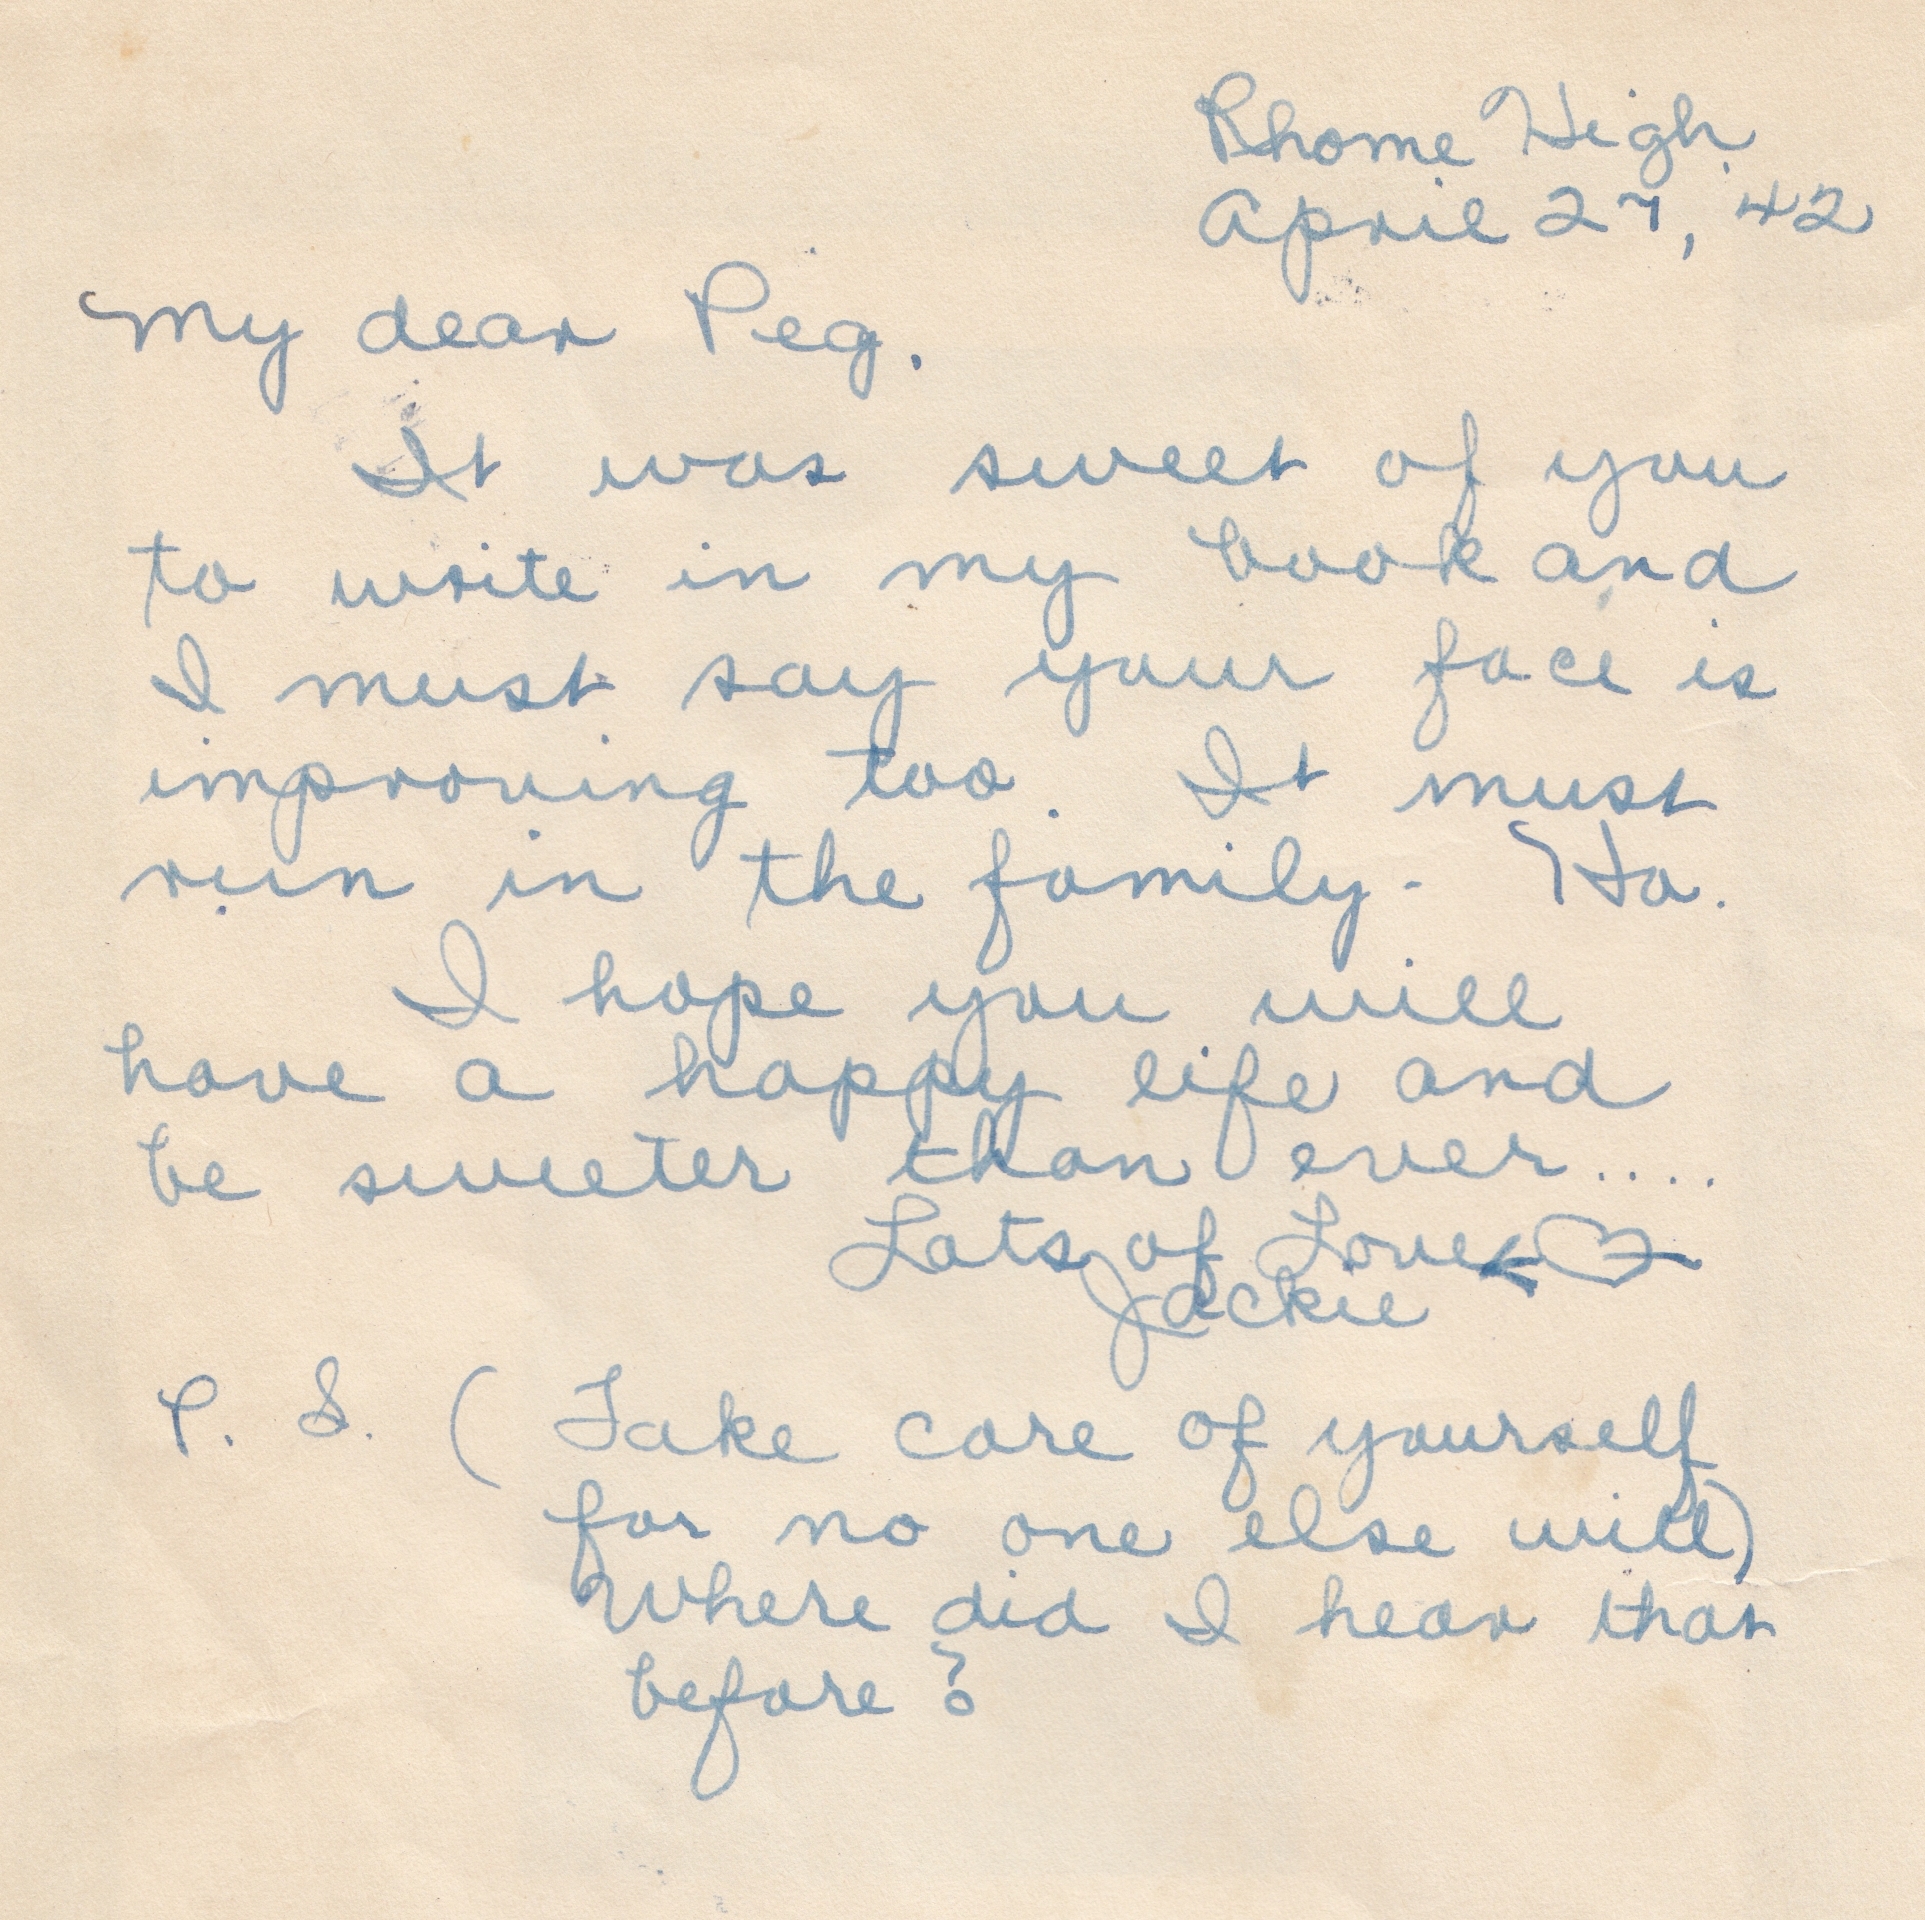 Rhome High
April 27, '42
My dear Peg.
It was sweet of you
to write in my book and
I must say your face is
improving too. It must
run in the family. Ha.
I hope you will
have a happy life and
be sweeter than ever....
Lots of Love
Jackie
P. S. (Take care of yourself
for no one else will)
Where did I hear that
before?